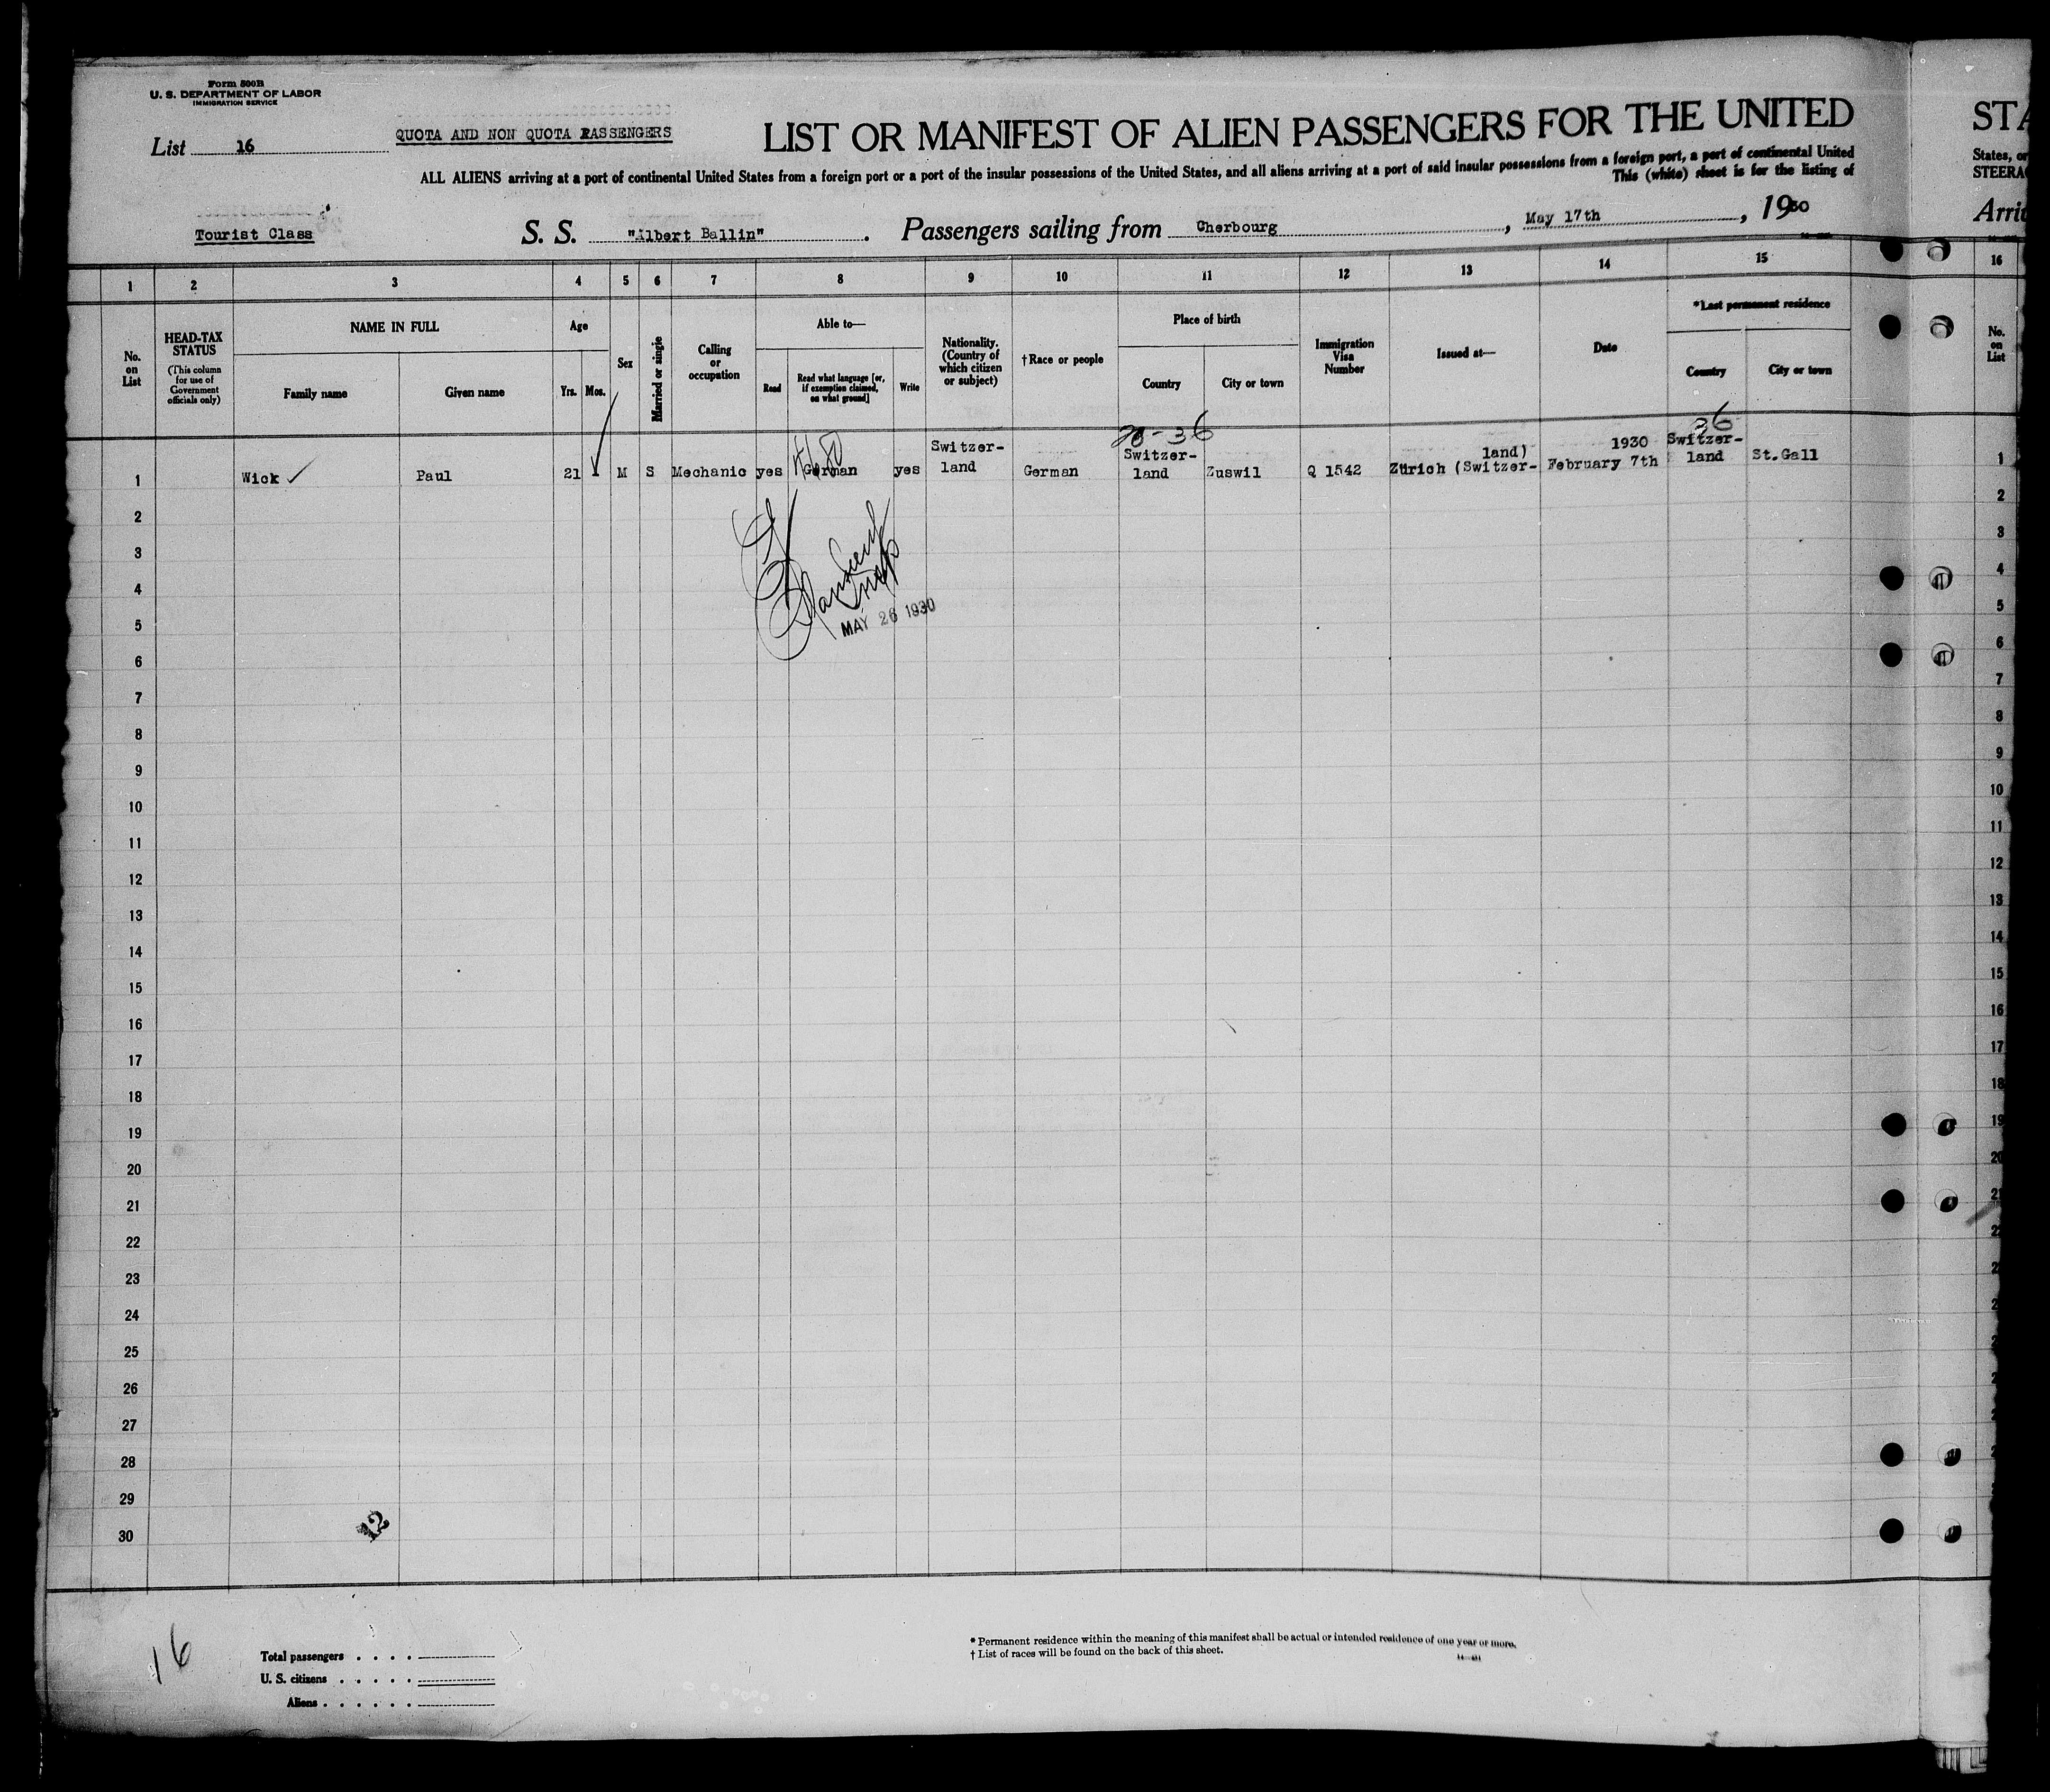 Form 500B
U. S. DEPARTMENT OF LABOR
IMMIGRATION SERVICE
List 16
QUOTA AND NON QUOTA PASSENGERS
LIST OR MANIFEST OF ALIEN PASSENGERS FOR THE UNITED
ALL ALIENS arriving at a port of continental United States from a foreign port or a port of the insular possessions of the United States, and all aliens arriving at a port of said insular possessions from a foreign port, a port of continental United
This (white) sheet is for the listing of
Tourist Class
S. S. "Albert Ballin". Passengers sailing from Cherbourg, May 17th, 1930
STA
States, or
STEERA
Arri
1 2 3 4 5 6 7 8 9 10 11 12 13 14 15 16
No. on List
HEAD-TAX STATUS
(This column for use of Government officials only)
NAME IN FULL
Family name
Given name
Age
Yrs.
Mos.
Sex
Married or single
Calling or occupation
Able to—
Read
Read what language [or, if exemption claimed, on what ground]
Write
Nationality. (Country of which citizen or subject)
†Race or people
Place of birth
Country
City or town
Immigration Visa Number
Issued at—
Date
*Last permanent residence
Country
City or town
No. on List
36
1 Wick Paul 21 M S Mechanic yes German yes Switzer-land German Switzer-land Zuswil Q 1542 Zürich (Switzer-land) February 7th 1930 Switzer-land St.Gall 1
MAY 26 1930
2 2
3 3
4 4
5 5
6 6
7 7
8 8
9 9
10 10
11 11
12 12
13 13
14 14
15 15
16 16
17 17
18 18
19 19
20 20
21 21
22
23
24
25
26
27
28
29
30
12
16
Total passengers
U. S. citizens
Aliens
* Permanent residence within the meaning of this manifest shall be actual or intended residence of one year or more.
† List of races will be found on the back of this sheet.